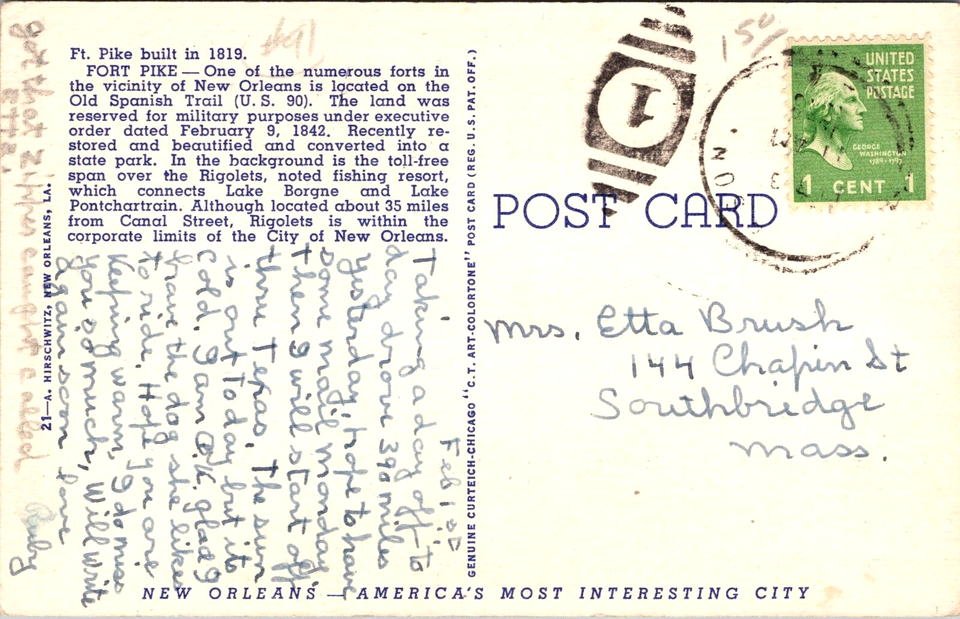 Ft. Pike built in 1819.
FORT PIKE — One of the numerous forts in
the vicinity of New Orleans is located on the
Old Spanish Trail (U. S. 90). The land was
reserved for military purposes under executive
order dated February 9, 1842. Recently re-
stored and beautified and converted into a
state park. In the background is the toll-free
span over the Rigolets, noted fishing resort,
which connects Lake Borgne and Lake
Pontchartrain. Although located about 35 miles
from Canal Street, Rigolets is within the
corporate limits of the City of New Orleans.
21—A. HIRSCHWITZ, NEW ORLEANS, LA.
Feb 1
Taking a day off to
day drove 390 miles
yesterday, hope to have
some mail Monday
then I will start off
thru Texas. The sun
is out today but its
cold. I am O.K. glad I
have the dog she likes
to ride. Hope you are
Keeping warm, I do miss
you so much, Will write
again soon love
Ruby
got that zipper caught
GENUINE CURTEICH-CHICAGO "C.T. ART-COLORTONE" POST CARD (REG. U. S. PAT. OFF.)
POST CARD
1
15¢
UNITED
STATES
POSTAGE
GEORGE
WASHINGTON
1789-1797
1 CENT 1
Mrs. Etta Brush
144 Chapin St
Southbridge
Mass.
NEW ORLEANS — AMERICA'S MOST INTERESTING CITY